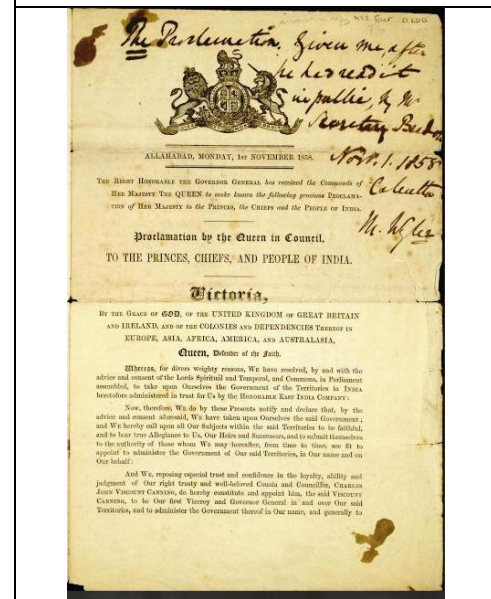 The Proclamation. Given me, after
he had read it
in public, by Mr
Secretary Beadon
Novr. 1. 1858
Calcutta
M. Wylie
ALLAHABAD, MONDAY, 1ST NOVEMBER 1858.
THE RIGHT HONORABLE THE GOVERNOR GENERAL has received the Commands of
HER MAJESTY THE QUEEN to make known the following gracious PROCLAMA-
TION of HER MAJESTY to the PRINCES, the CHIEFS and the PEOPLE OF INDIA.
Proclamation by the Queen in Council,
TO THE PRINCES, CHIEFS, AND PEOPLE OF INDIA.
Victoria,
BY THE GRACE OF GOD, OF THE UNITED KINGDOM OF GREAT BRITAIN
AND IRELAND, AND OF THE COLONIES AND DEPENDENCIES THEREOF IN
EUROPE, ASIA, AFRICA, AMERICA, AND AUSTRALASIA,
Queen, Defender of the Faith.
Whereas, for divers weighty reasons, WE have resolved, by and with the
advice and consent of the Lords Spiritual and Temporal, and Commons, in Parliament
assembled, to take upon Ourselves the Government of the Territories in INDIA
heretofore administered in trust for Us by the HONORABLE EAST INDIA COMPANY:
Now, therefore, WE do by these Presents notify and declare that, by the
advice and consent aforesaid, WE have taken upon Ourselves the said Government;
and WE hereby call upon all Our Subjects within the said Territories to be faithful,
and to bear true Allegiance to Us, Our Heirs and Successors, and to submit themselves
to the authority of those whom We may hereafter, from time to time, see fit to
appoint to administer the Government of Our said Territories, in Our name and on
Our behalf:
And WE, reposing especial trust and confidence in the loyalty, ability and
judgment of Our right trusty and well-beloved Cousin and Councillor, CHARLES
JOHN VISCOUNT CANNING, do hereby constitute and appoint him, the said VISCOUNT
CANNING, to be Our first Viceroy and Governor General in and over Our said
Territories, and to administer the Government thereof in Our name, and generally to